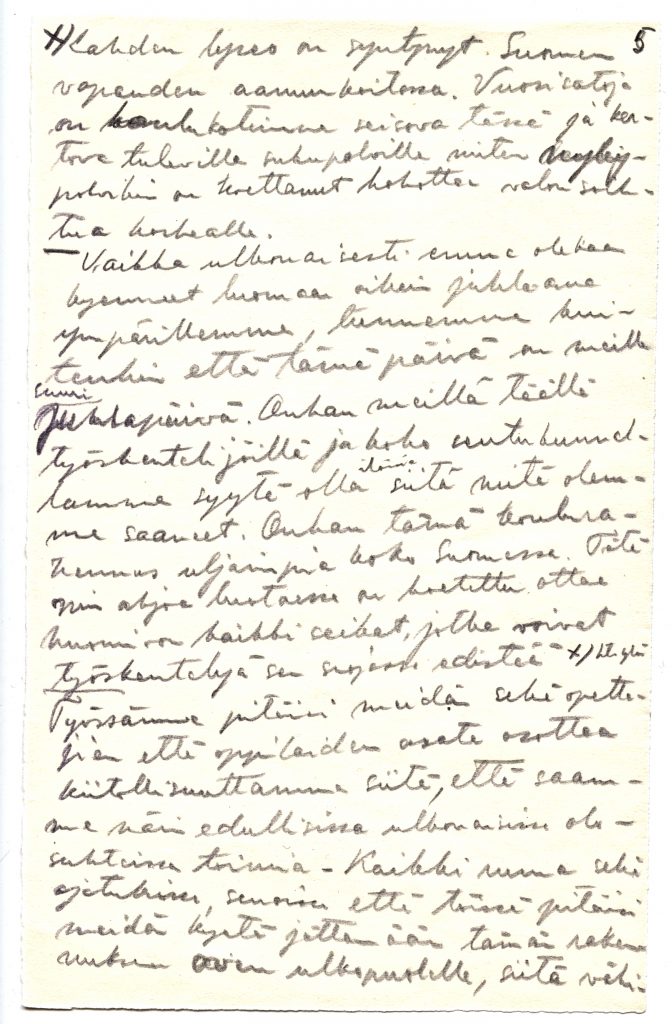 x) Lahden lyseo on syntynyt Suomen 5
vapauden aamunkoitossa. Vuosisatoja
on koulukotimme seisova tässä ja ker-
tova tuleville sukupolville miten
on koettanut kohottaa valon soih-
tua korkealle.
Vaikka ulkonaisesti emme olekaan
kyenneet luomaan oikein juhlaisaa
ympärillemme, tunnemme kui-
tenkin että tämä päivä on meille
suuri
juhlapäivä. Onhan meillä täällä
työskentelijöillä ja koko seutukunnal-
iloisia
lamme syytä olla siitä mitä olem-
me saaneet. Onhan tämä koulura-
kennus uljaimpia koko Suomessa. Sitä
luotaessa on koetettu ottaa
huomioon kaikki seikat, jotka voivat
työskentelyä sen suojassa edistää x)
Työssämme pitäisi meidän sekä opetta-
jien että oppilaiden osata osottaa
kiitollisuuttamme siitä, että saam-
me näin edullisissa ulkonaisissa olo-
suhteissa toimia – Kaikki muu sekä
ajatuksissa, sanoissa että töissä pitäisi
meidän kyetä jättämään tämän raken-
nuksen oven ulkopuolelle, siitä väli-